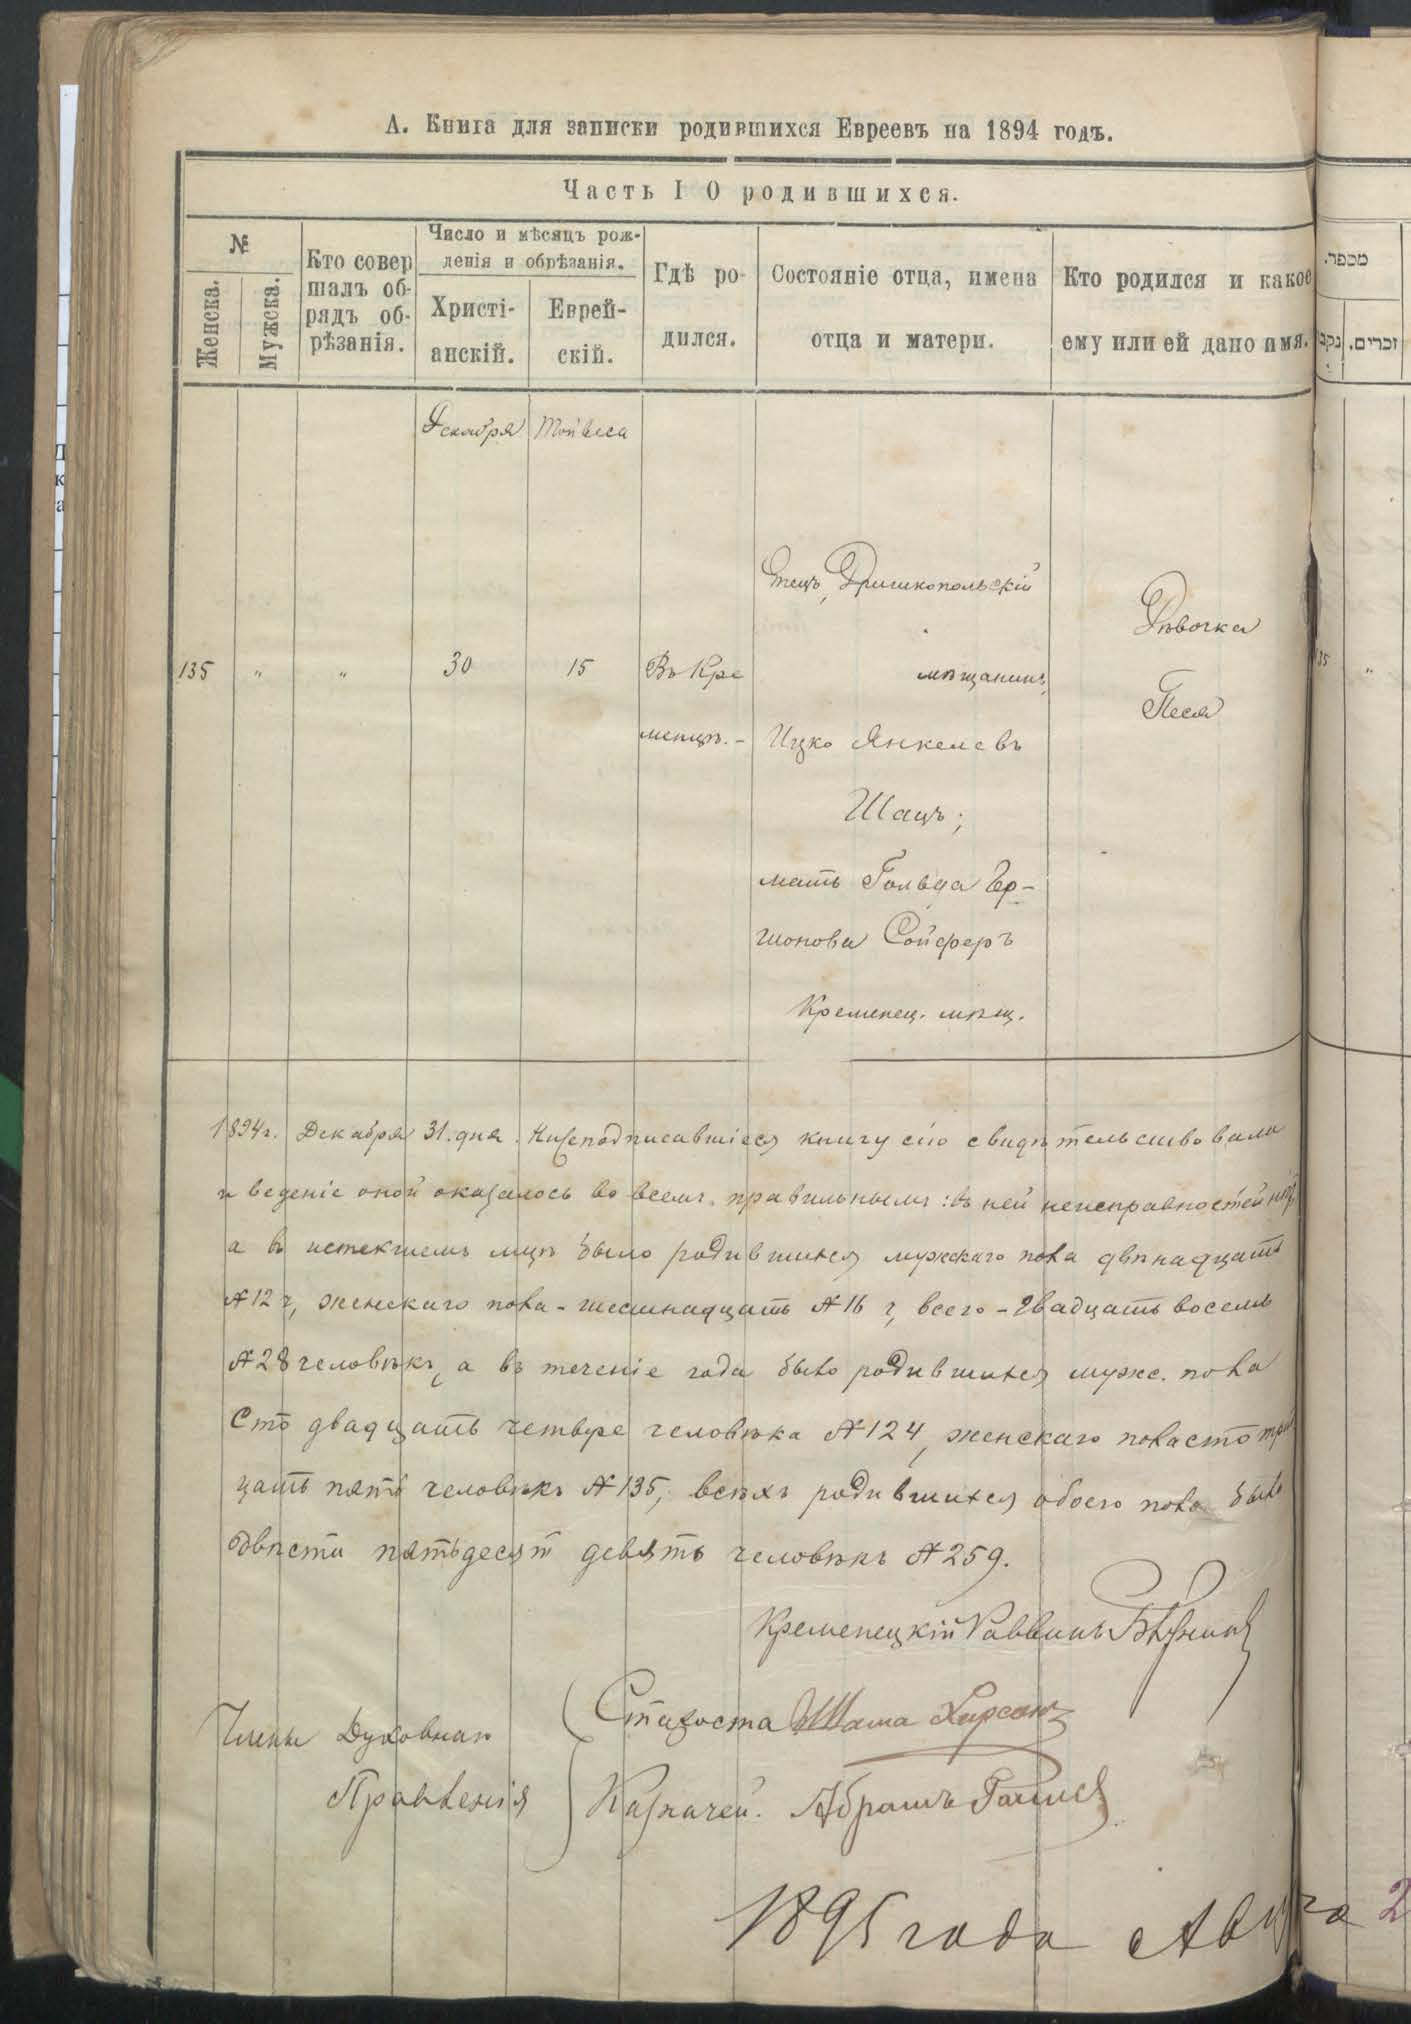 А. Книга для записки родившихся Евреевъ на 1894 годъ.
Часть I О родившихся.
№
Женска.
Мужска.
Кто совер
шалъ об-
рядъ об-
рѣзанія.
Число и мѣсяцъ рож-
денія и обрѣзанія.
Христі-
анскій.
Еврей-
скій.
Гдѣ ро-
дился.
Состояніе отца, имена
отца и матери.
Кто родился и какое
ему или ей дано имя.
מספר.
זכרים.
Декабря
Тейвеса
135 " " 30 15
Въ Кре
менцѣ.-
Отецъ, Дришкопольскій
мѣщанинъ,
Ицко Янкелевъ
Шацъ;
мать Гольда Гер-
шонова Сойферъ
Кременец. мѣщ.
Дѣвочка
Песя
1894 г. Декабря 31. дня. Нижеподписавшіеся книгу сію свидѣтельствовали
и веденіе оной оказалось во всемъ правильнымъ: въ ней неисправностей нѣтъ
а въ истекшемъ мцѣ было родившихся мужскаго пола двѣнадцать
№ 12 ч, женскаго пола - шестнадцать № 16 ч, всего - двадцать восемь
№ 28 человѣкъ, а въ теченіе года было родившихся мужс. пола
Сто двадцать четыре человѣка № 124, женскаго пола сто трид
цать пять человѣкъ № 135, всѣхъ родившихся обоего пола было
двѣсти пятьдесят девять человѣкъ № 259.
Кременецкій Раввинъ
Члены Духовнаго
Правленія
Староста Шама
Казначей. Абрамъ
1895 года Авг
2